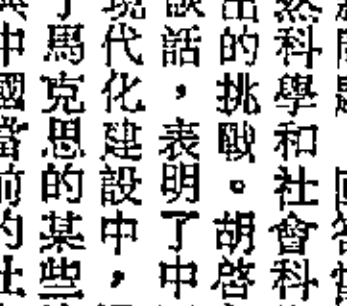 然科學和社會科
出的挑戰。胡啓
談話，表明了中
現代化建設中，
了馬克思的某些
中國當前的社